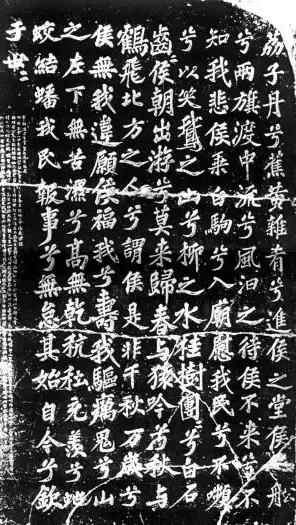 荔子丹兮蕉黃雜肴兮進侯之堂侯之船
兮兩旗渡中流兮風汩之待侯不來兮不
知我悲侯乘白駒兮入廟慰我民兮不嚬
兮以笑鵞之山兮柳之水桂樹團〻兮白石
齒〻侯朝出游兮莫來歸春与猿吟兮秋与
鶴飛北方之人兮謂侯是非千秋万歲兮
侯無我違願侯福我兮壽我驅癘鬼兮山
之左下無苦濕兮高無乾秔稌充羨兮蛇
蛟結蟠我民報事兮無怠其始自今兮欽
于世〻